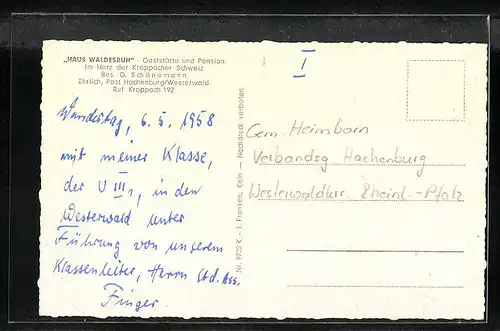 „HAUS WALDESRUH" - Gaststätte und Pension
Im Herz der Kroppacher Schweiz
Bes. G. Schönemann
Ehrlich, Post Hachenburg/Westerwald
Ruf Kroppach 192
I
Wandertag, 6. 5. 1958
mit meiner Klasse,
der U III 1, in den
Westerwald unter
Führung von unserem
Klassenleiter, Herrn Std. Ass.
Finger.
Nr. 9722 K - I. Franken, Köln — Nachdruck verboten
Gem. Heimborn
Verbandsg Hachenburg
Westerwaldkr. Rheinl.-Pfalz